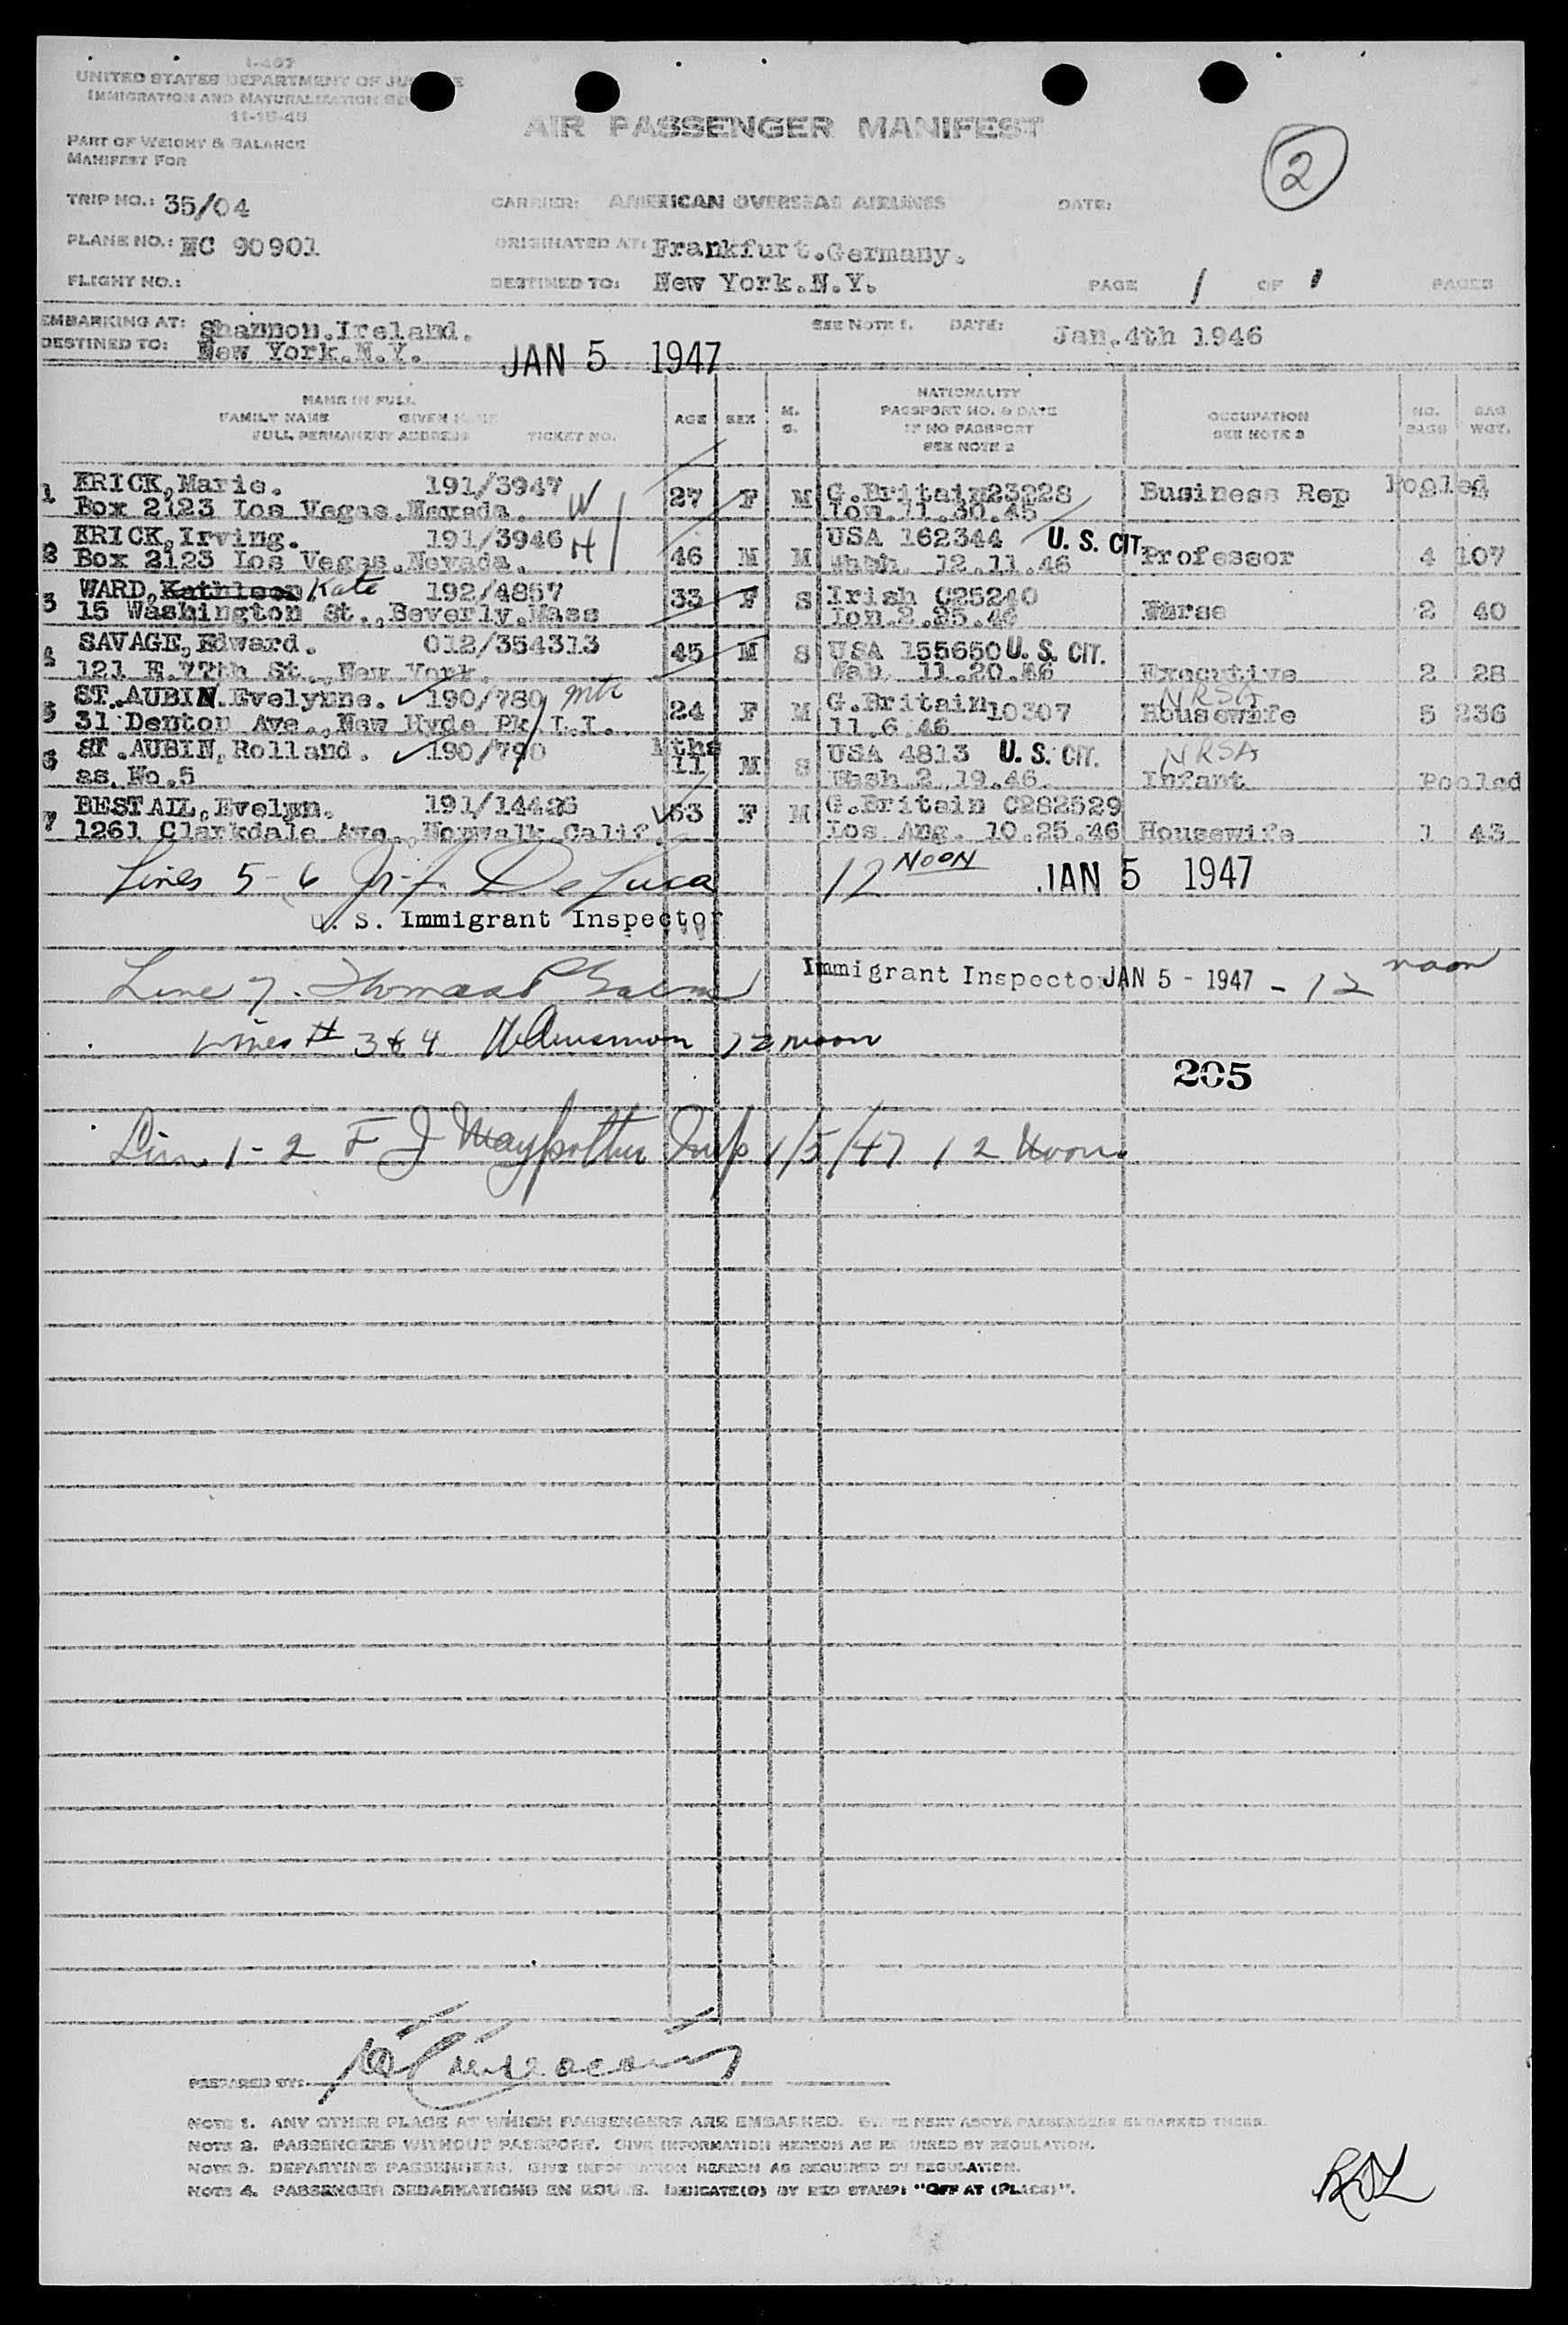 I-467
UNITED STATES DEPARTMENT OF JUSTICE
IMMIGRATION AND NATURALIZATION SE
11-15-45
AIR PASSENGER MANIFEST
2
PART OF WEIGHT & BALANCE
MANIFEST FOR
TRIP NO.: 35/04 CARRIER: AMERICAN OVERSEAS AIRLINES DATE:
PLANE NO.: NC 90901 ORIGINATED AT: Frankfurt.Germany.
FLIGHT NO.: DESTINED TO: New York.N.Y. PAGE 1 OF 1 PAGES
EMBARKING AT: Shannon.Ireland. SEE NOTE 1. DATE: Jan.4th 1946
DESTINED TO: New York.N.Y. JAN 5 1947
NAME IN FULL
FAMILY NAME GIVEN NAME
FULL PERMANENT ADDRESS TICKET NO. AGE SEX M. S. NATIONALITY PASSPORT NO. & DATE IF NO PASSPORT SEE NOTE 2 OCCUPATION SEE NOTE 3 NO. BAGS BAG WGT.
1 ERICK,Marie. 191/3947 W 27 F M G.Britain23228 Business Rep Pooled
Box 2123 Los Vegas.Nevada. Lon.11.30.45
2 ERICK,Irving. 191/3946 H 46 M M USA 162344 U. S. CIT. Professor 4 107
Box 2123 Los Vegas.Nevada. Wash. 12.11.46
3 WARD,Kathleen Kate 192/4857 33 F S Irish C25240 Nurse 2 40
15 Washington St.,Beverly.Mass Lon.2.25.46
4 SAVAGE,Edward. 012/354313 45 M S USA 155650 U. S. CIT. Executive 2 28
121 E.77th St.,New York. Wash. 11.20.46
5 ST.AUBIN.Evelynne. 190/780 24 F M G.Britain10307 NRSA Housewife 5 236
31 Denton Ave.,New Hyde Pk, L.I. 11.6.46
6 ST.AUBIN,Rolland. 190/790 Mths 11 M S USA 4813 U. S. CIT. NRSA Infant Pooled
as.No.5 Wash.2.19.46.
7 BESTALL,Evelyn. 191/14426 53 F M G.Britain C282529 Housewife 1 43
1261 Clarkdale Ave.,Norwalk.Calif. Los Ang. 10.25.46
Lines 5-6 De Luca 12 NOON JAN 5 1947
U. S. Immigrant Inspector
Line 7. Thomas Immigrant Inspector JAN 5 - 1947 - 12 noon
Lines # 3 & 4 12 noon
205
Line 1-2 F J Insp 1/5/47 12 Noon
PREPARED BY:
NOTE 1. ANY OTHER PLACE AT WHICH PASSENGERS ARE EMBARKED. STATE NEXT ABOVE PASSENGERS EMBARKED THERE.
NOTE 2. PASSENGERS WITHOUT PASSPORT. GIVE INFORMATION HEREON AS REQUIRED BY REGULATION.
NOTE 3. DEPARTING PASSENGERS. GIVE INFORMATION HEREON AS REQUIRED BY REGULATION.
NOTE 4. PASSENGER DEBARKATIONS EN ROUTE. INDICATE(D) BY RED STAMP: "OFF AT (PLACE)".